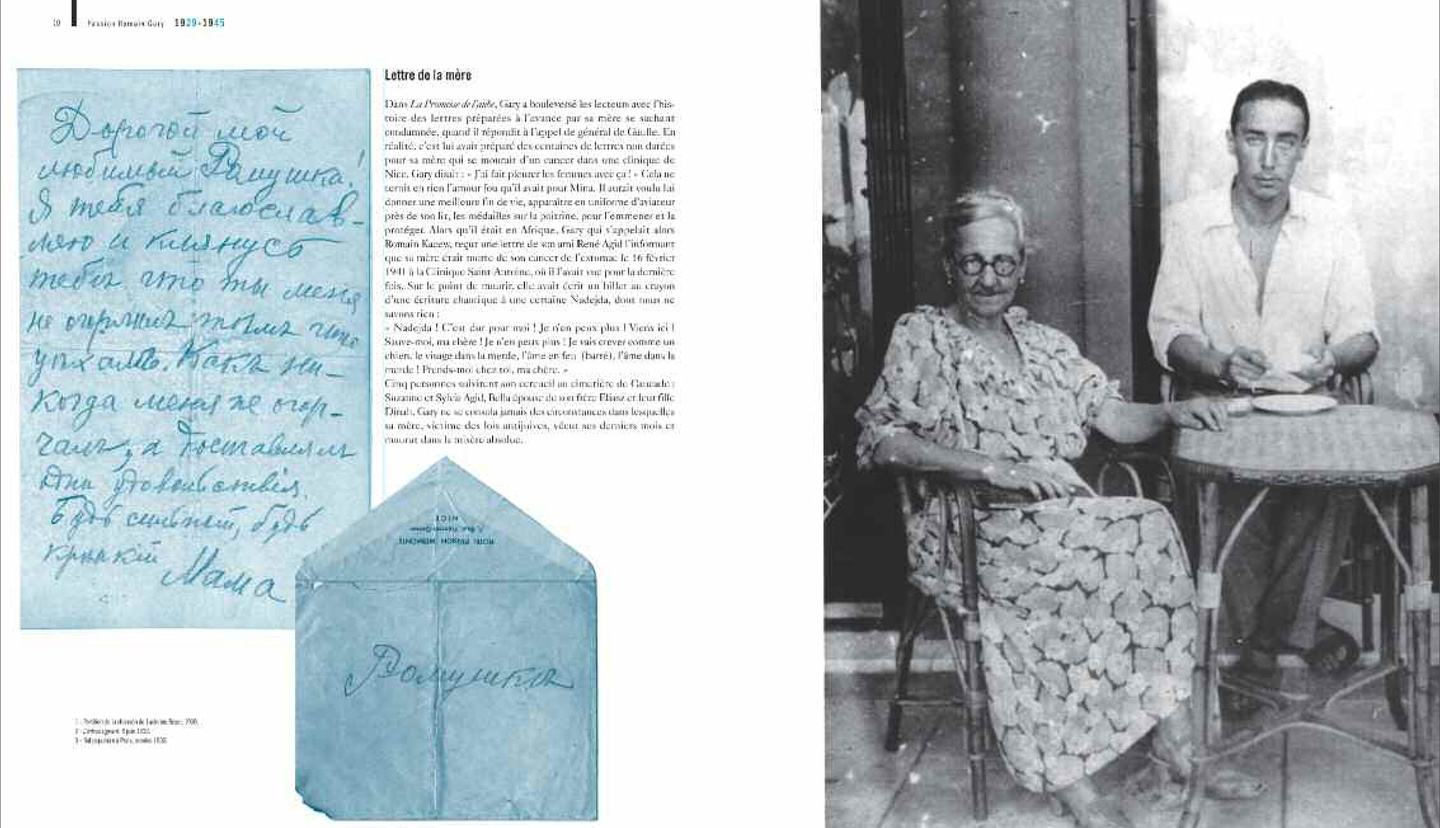 10
Passion Romain Gary 1929-1945
Дорогой мой
любимый Ромушка!
Я тебя благослав-
ляю и клянусь
тебѣ что ты меня
не огорчилъ тѣмъ что
уѣхалъ. Какъ ни-
когда меня не огор-
чалъ, а доставлялъ
удовольствія.
Будь сильный, будь
крѣпкій Мама
Lettre de la mère
Dans La Promesse de l'aube, Gary a bouleversé les lecteurs avec l'his-
toire des lettres préparées à l'avance par sa mère se sachant
condamnée, quand il répondit à l'appel de général de Gaulle. En
réalité, c'est lui avait préparé des centaines de lettres non datées
pour sa mère qui se mourait d'un cancer dans une clinique de
Nice. Gary disait : « J'ai fait pleurer les femmes avec ça ! » Cela ne
ternit en rien l'amour fou qu'il avait pour Mina. Il aurait voulu lui
donner une meilleure fin de vie, apparaître en uniforme d'aviateur
près de son lit, les médailles sur la poitrine, pour l'emmener et la
protéger. Alors qu'il était en Afrique, Gary qui s'appelait alors
Romain Kacew, reçut une lettre de son ami René Agid l'informant
que sa mère était morte de son cancer de l'estomac le 16 février
1941 à la Clinique Saint-Antoine, où il l'avait vue pour la dernière
fois. Sur le point de mourir, elle avait écrit un billet au crayon
d'une écriture chaotique à une certaine Nadejda, dont nous ne
savons rien :
« Nadejda ! C'est dur pour moi ! Je n'en peux plus ! Viens ici !
Sauve-moi, ma chère ! Je n'en peux plus ! Je vais crever comme un
chien, le visage dans la merde, l'âme en feu (barré), l'âme dans la
merde ! Prends-moi chez toi, ma chère. »
Cinq personnes suivirent son cercueil au cimetière de Caucade :
Suzanne et Sylvia Agid, Bella épouse de son frère Eliasz et leur fille
Dinah. Gary ne se consola jamais des circonstances dans lesquelles
sa mère, victime des lois antijuives, vécut ses derniers mois et
mourut dans la misère absolue.
NICE
HOTEL PENSION MERMONTS
Ромушка